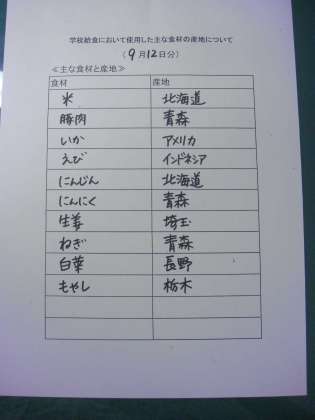 学校給食において使用した主な食材の産地について
（9月12日分）
≪主な食材と産地≫
食材 産地
米 北海道
豚肉 青森
いか アメリカ
えび インドネシア
にんじん 北海道
にんにく 青森
生姜 埼玉
ねぎ 青森
白菜 長野
もやし 栃木